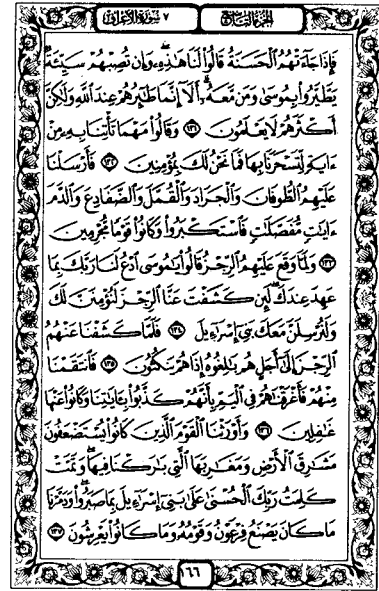 الجزء التاسع ٧ سورة الأعراف
فَإِذَا جَآءَتْهُمُ ٱلْحَسَنَةُ قَالُوا۟ لَنَا هَٰذِهِۦ وَإِن تُصِبْهُمْ سَيِّئَةٌ
يَطَّيَّرُوا۟ بِمُوسَىٰ وَمَن مَّعَهُۥٓ أَلَآ إِنَّمَا طَٰٓئِرُهُمْ عِندَ ٱللَّهِ وَلَٰكِنَّ
أَكْثَرَهُمْ لَا يَعْلَمُونَ ١٣١ وَقَالُوا۟ مَهْمَا تَأْتِنَا بِهِۦ مِنْ
ءَايَةٍ لِّتَسْحَرَنَا بِهَا فَمَا نَحْنُ لَكَ بِمُؤْمِنِينَ ١٣٢ فَأَرْسَلْنَا
عَلَيْهِمُ ٱلطُّوفَانَ وَٱلْجَرَادَ وَٱلْقُمَّلَ وَٱلضَّفَادِعَ وَٱلدَّمَ
ءَايَٰتٍ مُّفَصَّلَٰتٍ فَٱسْتَكْبَرُوا۟ وَكَانُوا۟ قَوْمًا مُّجْرِمِينَ
١٣٣ وَلَمَّا وَقَعَ عَلَيْهِمُ ٱلرِّجْزُ قَالُوا۟ يَٰمُوسَى ٱدْعُ لَنَا رَبَّكَ بِمَا
عَهِدَ عِندَكَ لَئِن كَشَفْتَ عَنَّا ٱلرِّجْزَ لَنُؤْمِنَنَّ لَكَ
وَلَنُرْسِلَنَّ مَعَكَ بَنِىٓ إِسْرَٰٓءِيلَ ١٣٤ فَلَمَّا كَشَفْنَا عَنْهُمُ
ٱلرِّجْزَ إِلَىٰٓ أَجَلٍ هُم بَٰلِغُوهُ إِذَا هُمْ يَنكُثُونَ ١٣٥ فَٱنتَقَمْنَا
مِنْهُمْ فَأَغْرَقْنَٰهُمْ فِى ٱلْيَمِّ بِأَنَّهُمْ كَذَّبُوا۟ بِـَٔايَٰتِنَا وَكَانُوا۟ عَنْهَا
غَٰفِلِينَ ١٣٦ وَأَوْرَثْنَا ٱلْقَوْمَ ٱلَّذِينَ كَانُوا۟ يُسْتَضْعَفُونَ
مَشَٰرِقَ ٱلْأَرْضِ وَمَغَٰرِبَهَا ٱلَّتِى بَٰرَكْنَا فِيهَا وَتَمَّتْ
كَلِمَتُ رَبِّكَ ٱلْحُسْنَىٰ عَلَىٰ بَنِىٓ إِسْرَٰٓءِيلَ بِمَا صَبَرُوا۟ وَدَمَّرْنَا
مَا كَانَ يَصْنَعُ فِرْعَوْنُ وَقَوْمُهُۥ وَمَا كَانُوا۟ يَعْرِشُونَ ١٣٧
١٦٦